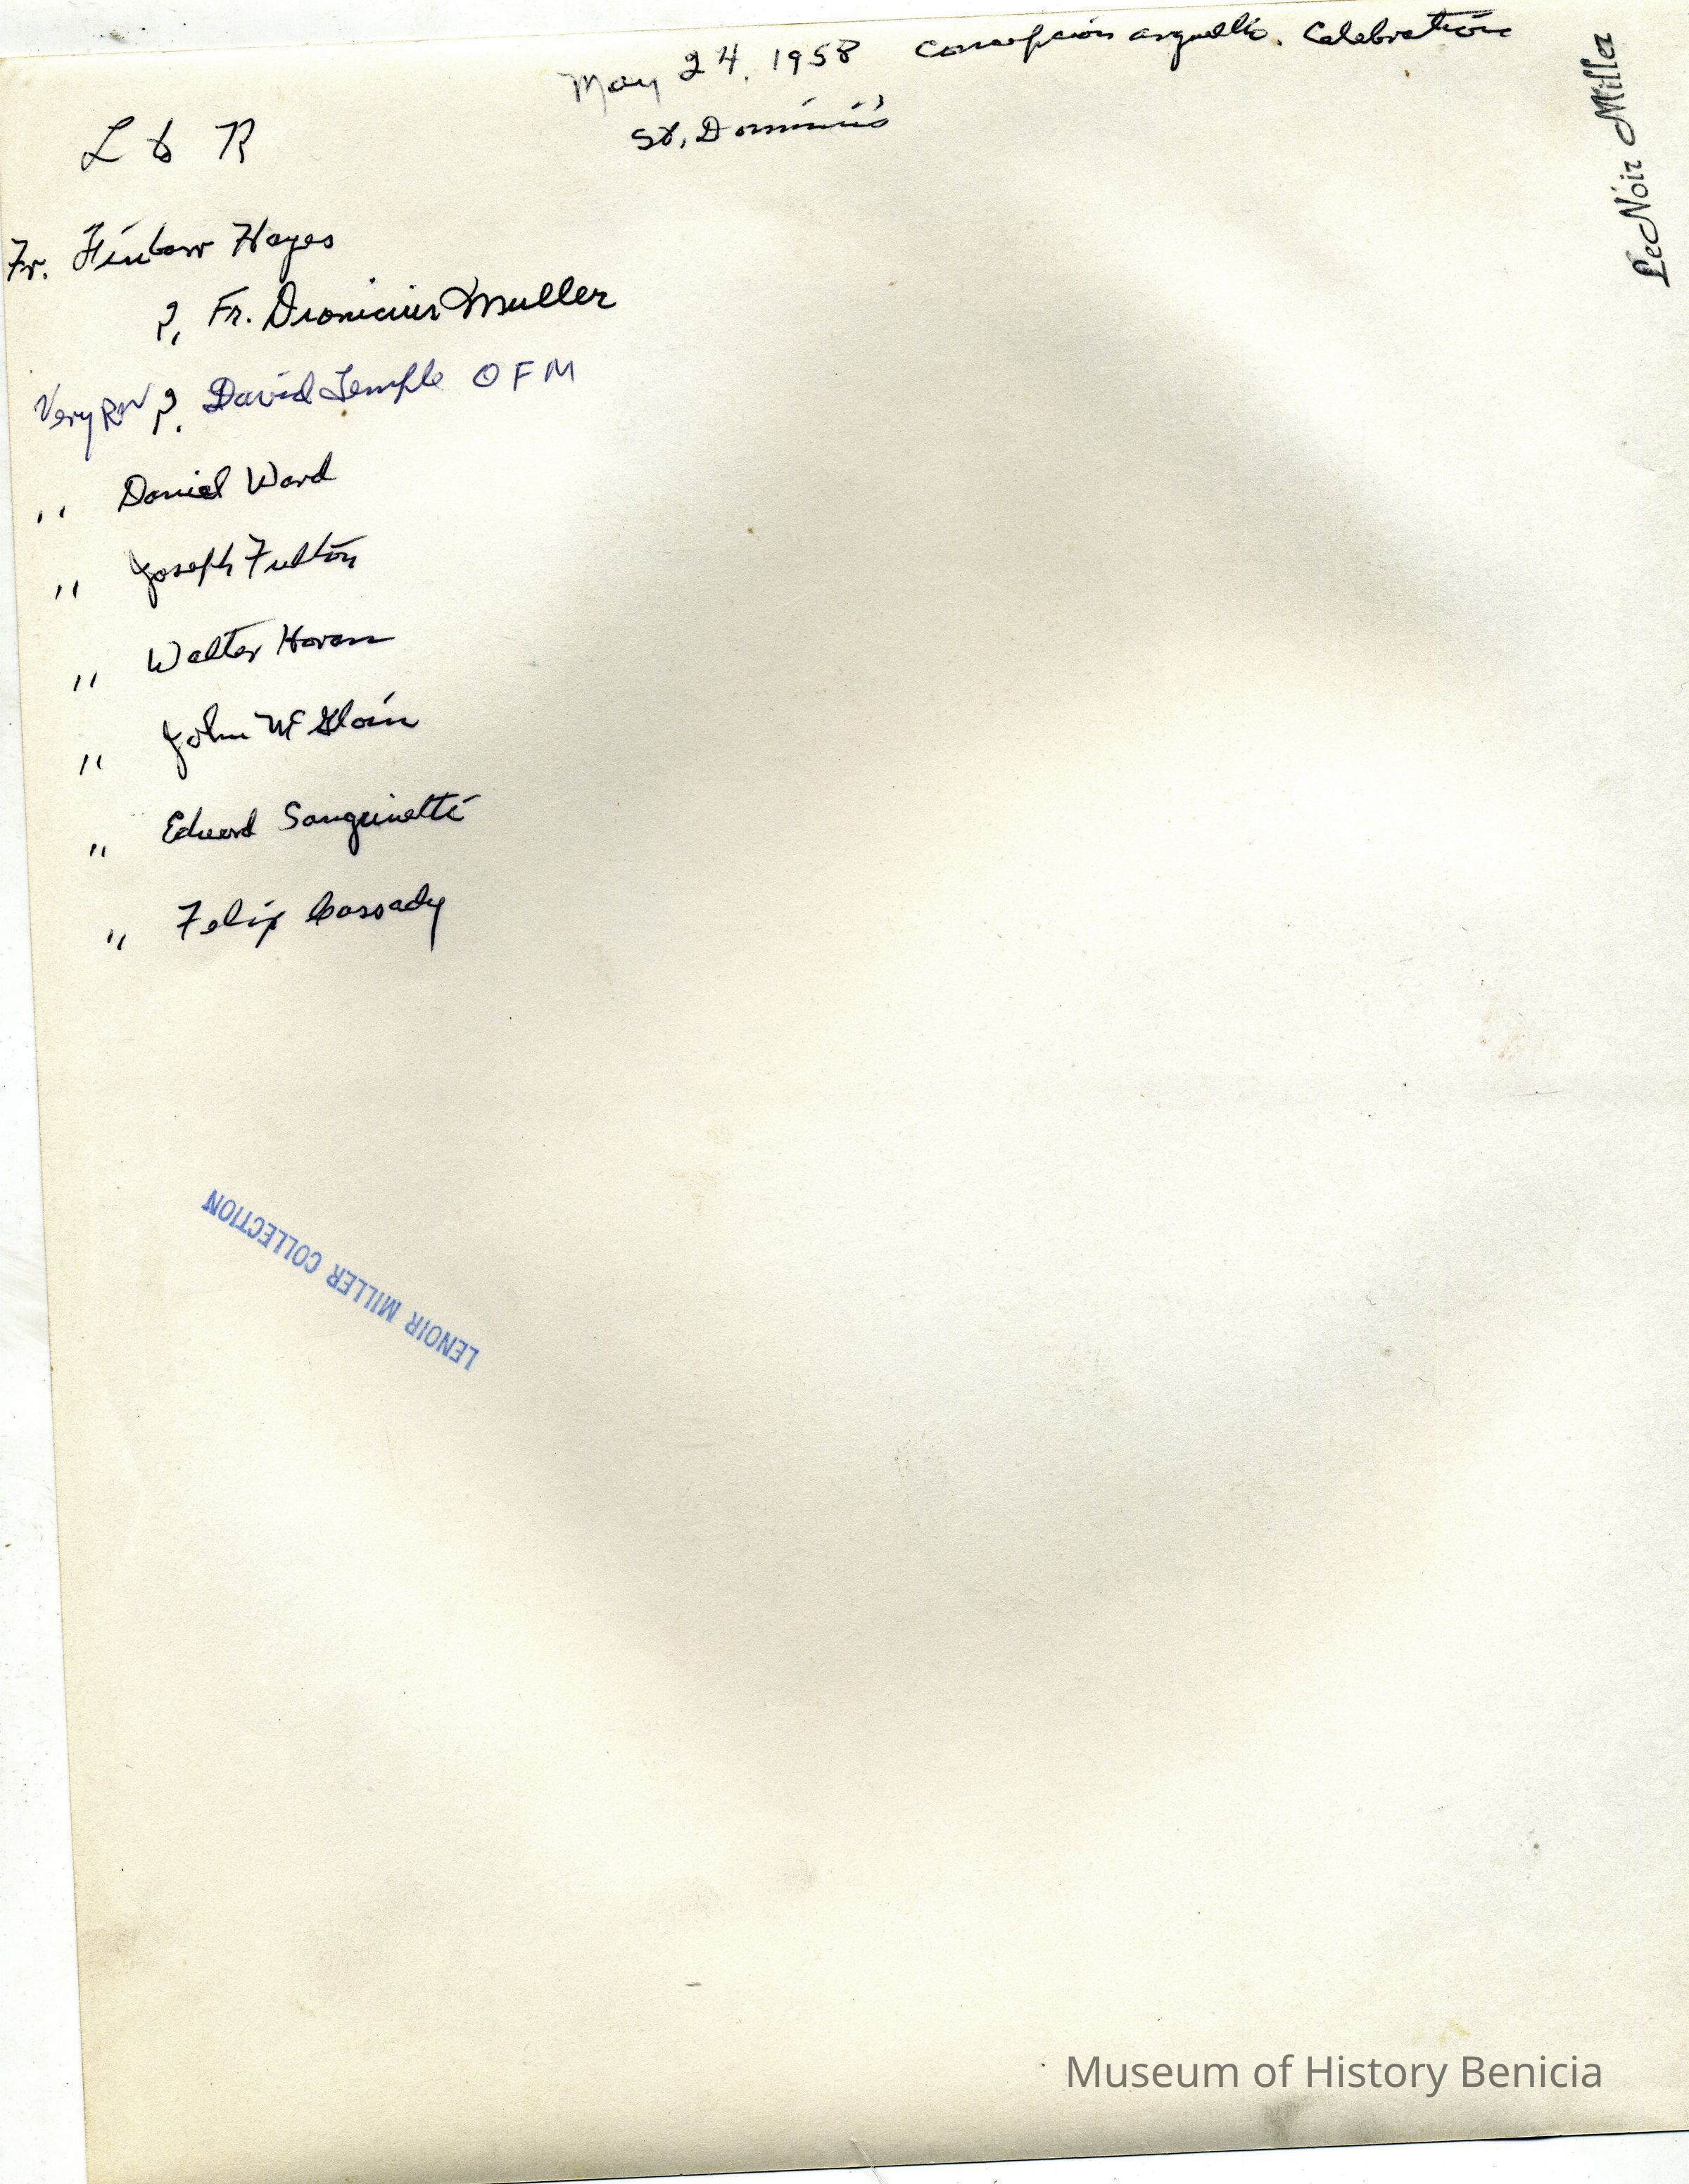 May 24, 1958 Concepcion arguello. Celebration
St, Dominic's
LeNoir Miller
L to R
Fr. Finbarr Hayes
?, Fr. Dionicius Muller
Very Rev ?. David Temple OFM
" Daniel Ward
" Joseph Fulton
" Walter Horan
" John McGloin
" Edward Sanguinetti
" Felix Cassady
LENOIR MILLER COLLECTION
Museum of History Benicia